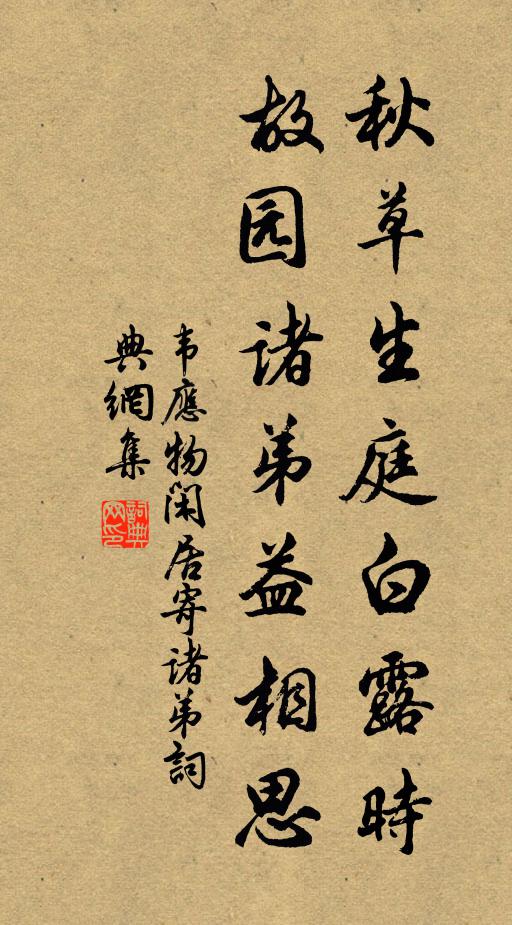 秋草生庭白露時
故园诸弟益相思
韦應物閑居寄诸弟詞
典網集
詞典網印